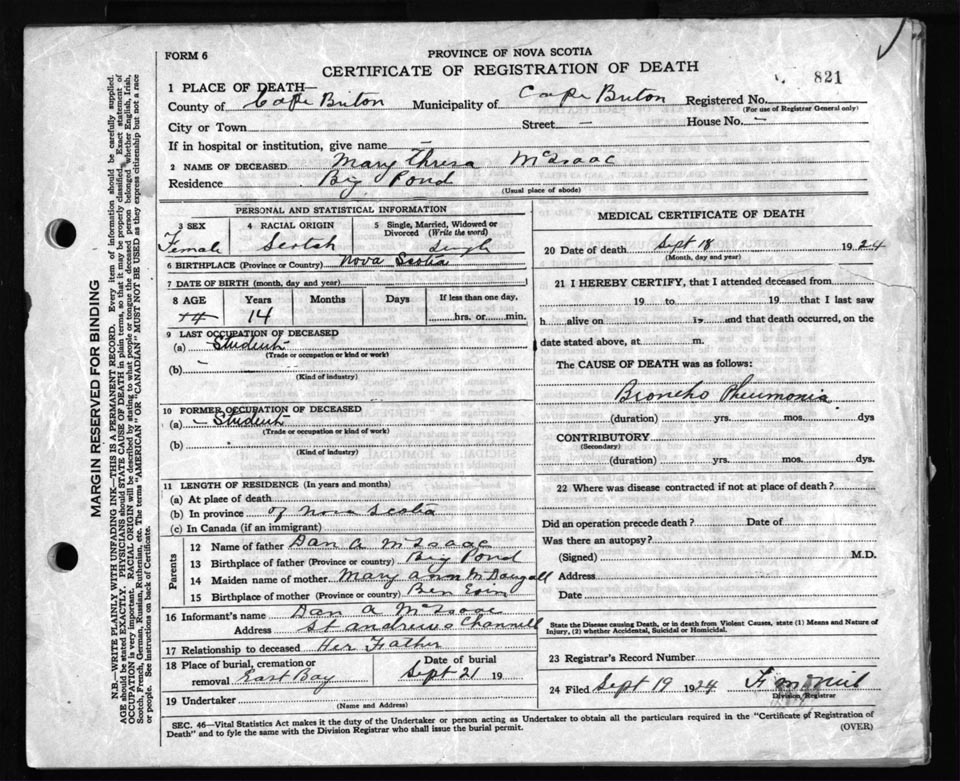 FORM 6
PROVINCE OF NOVA SCOTIA
CERTIFICATE OF REGISTRATION OF DEATH
821
1 PLACE OF DEATH—
County of Cape Briton Municipality of Cape Briton Registered No.
(For use of Registrar General only)
City or Town Street — House No. —
If in hospital or institution, give name —
2 NAME OF DECEASED Mary Thresa McIsaac
Residence Big Pond
(Usual place of abode)
PERSONAL AND STATISTICAL INFORMATION
3 SEX 4 RACIAL ORIGIN 5 Single, Married, Widowed or Divorced (Write the word)
Female Scotch Single
6 BIRTHPLACE (Province or Country) Nova Scotia
7 DATE OF BIRTH (month, day and year)
8 AGE Years Months Days If less than one day,
14 hrs. or min.
9 LAST OCCUPATION OF DECEASED
(a) Student
(Trade or occupation or kind of work)
(b) —
(Kind of industry)
10 FORMER OCCUPATION OF DECEASED
(a) — Student
(Trade or occupation or kind of work)
(b)
(Kind of industry)
11 LENGTH OF RESIDENCE (In years and months)
(a) At place of death
(b) In province of Nova Scotia
(c) In Canada (if an immigrant)
Parents
12 Name of father Dan A McIsaac
13 Birthplace of father (Province or country) Big Pond
14 Maiden name of mother Mary Ann McDougall
15 Birthplace of mother (Province or country) Ben Eoin
16 Informant's name Dan A McIsaac
Address St Andrews Channell
17 Relationship to deceased Her Father
18 Place of burial, cremation or removal East Bay Date of burial Sept 21 19
19 Undertaker
(Name and Address)
MEDICAL CERTIFICATE OF DEATH
20 Date of death Sept 18 1924
(Month, day and year)
21 I HEREBY CERTIFY, that I attended deceased from
19 to 19 that I last saw
h alive on 19 and that death occurred, on the
date stated above, at m.
The CAUSE OF DEATH was as follows:
Broncho Pheumonia
(duration) yrs. mos. dys
CONTRIBUTORY
(Secondary)
(duration) yrs. mos. dys.
22 Where was disease contracted if not at place of death?
Did an operation precede death? Date of
Was there an autopsy?
(Signed) M.D.
Address
Date
State the Disease causing Death, or in death from Violent Causes, state (1) Means and Nature of
Injury, (2) whether Accidental, Suicidal or Homicidal.
23 Registrar's Record Number
24 Filed Sept 19 1924
Division Registrar
SEC. 46—Vital Statistics Act makes it the duty of the Undertaker or person acting as Undertaker to obtain all the particulars required in the "Certificate of Registration of
Death" and to fyle the same with the Division Registrar who shall issue the burial permit.
(OVER)
MARGIN RESERVED FOR BINDING
N.B.—WRITE PLAINLY WITH UNFADING INK—THIS IS A PERMANENT RECORD. Every item of information should be carefully supplied.
AGE should be stated EXACTLY. PHYSICIANS should STATE CAUSE OF DEATH in plain terms, so that it may be properly classified. Exact statement of
OCCUPATION is very important. RACIAL ORIGIN will be described by stating to what people or tongue the deceased person belonged, whether English, Irish,
Scotch, French, German, Russian, Ruthenian, etc. The terms "AMERICAN" OR "CANADIAN" MUST NOT BE USED as they express citizenship but not a race
or people. See instructions on back of Certificate.